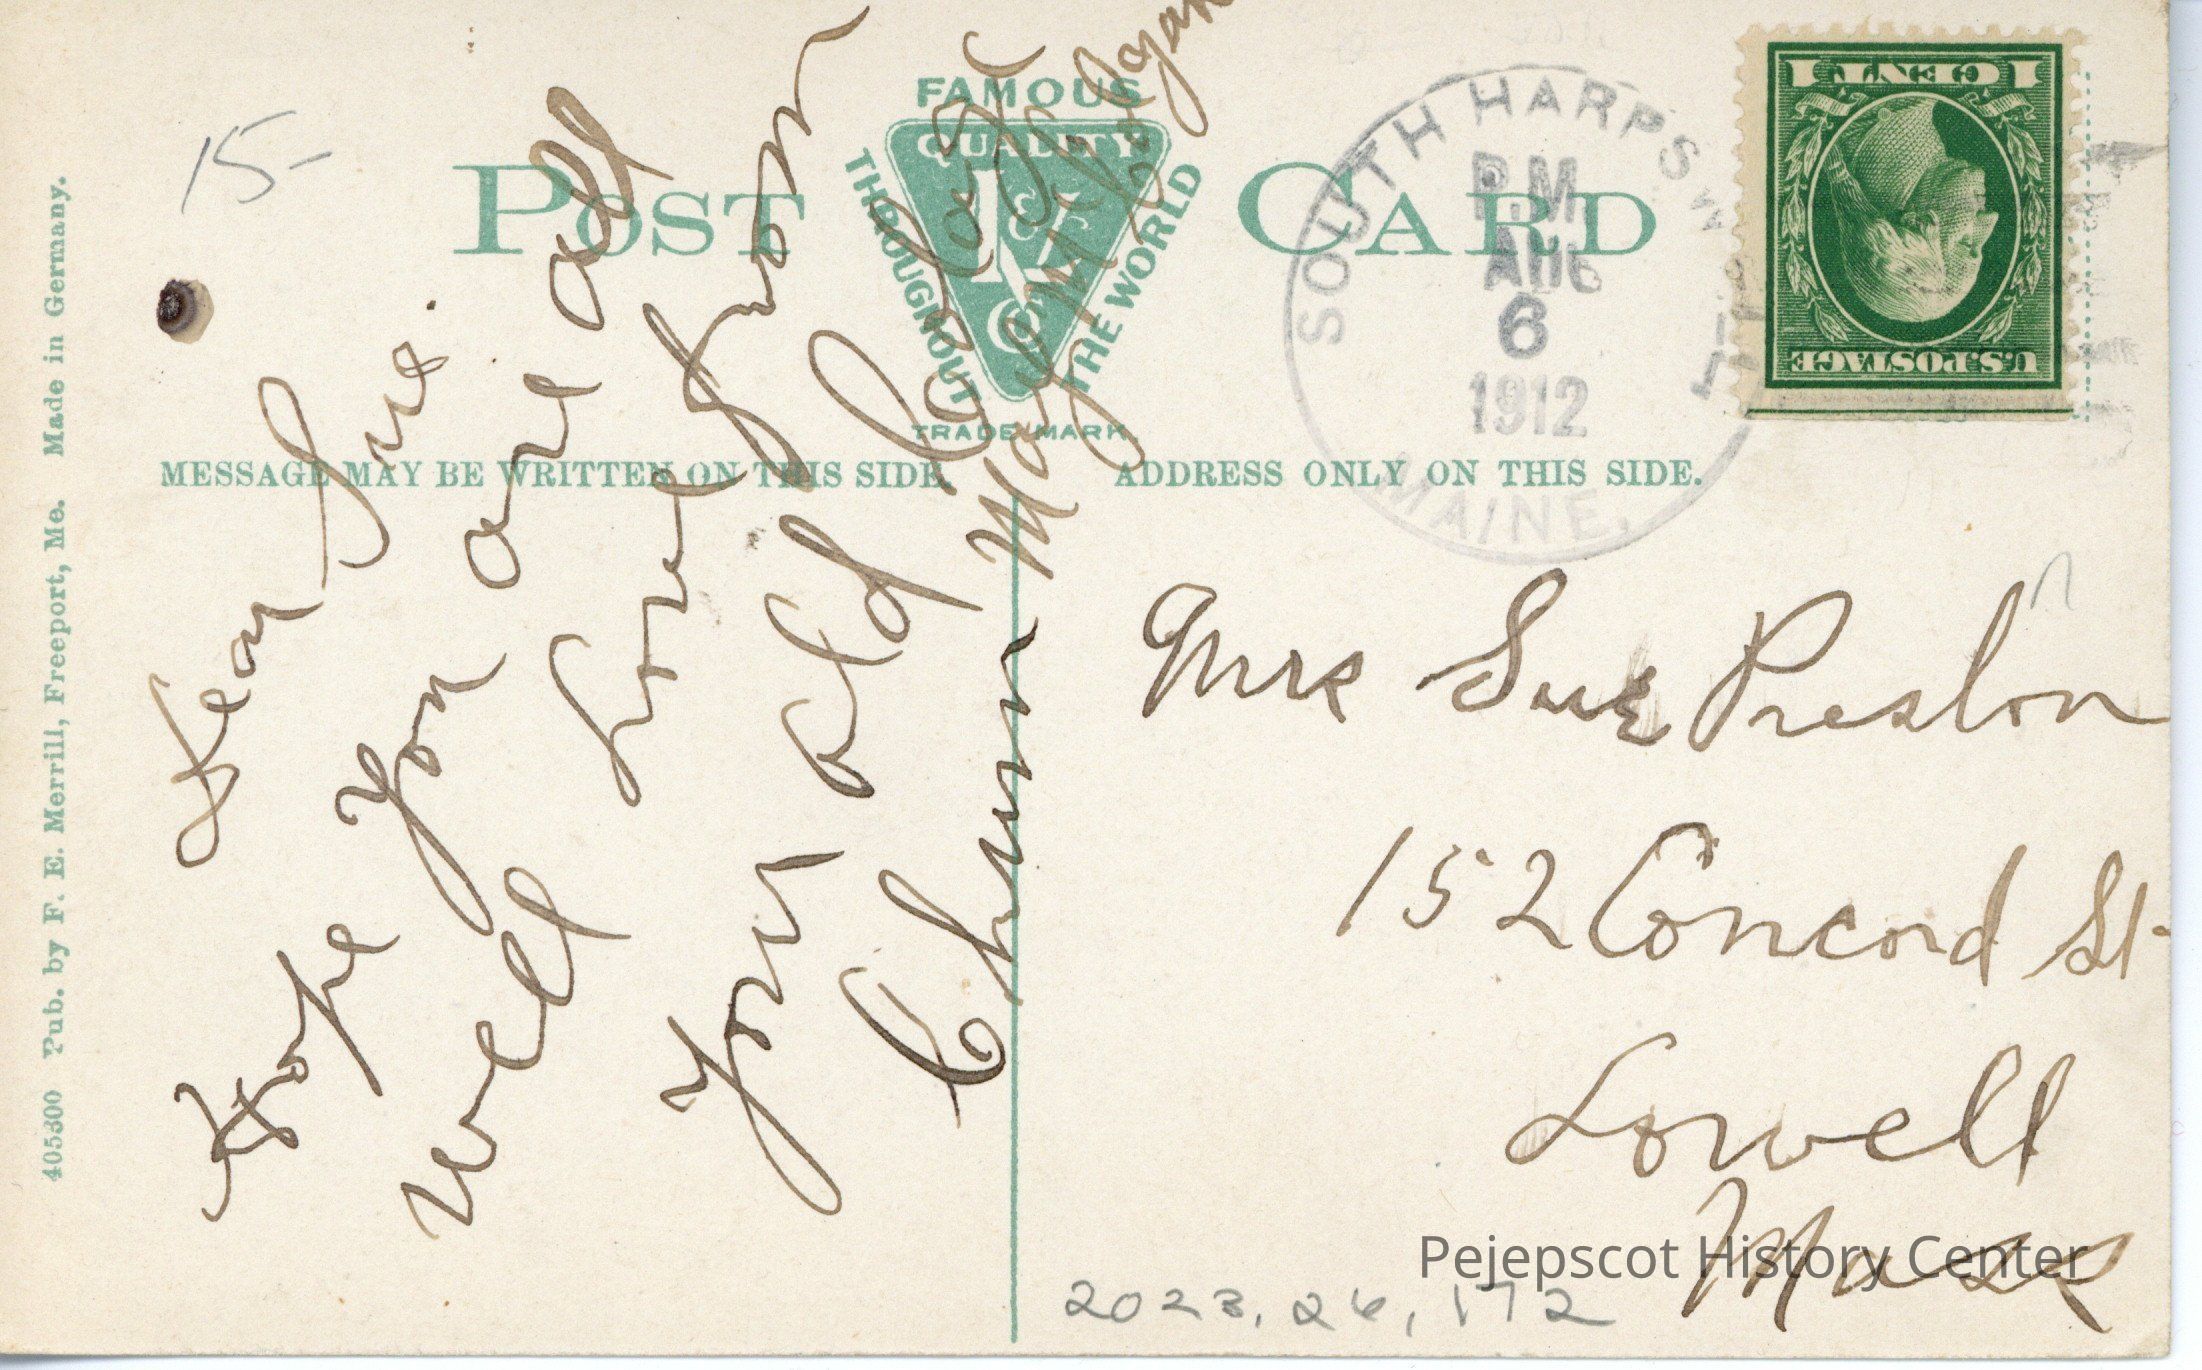 405300 Pub. by F. E. Merrill, Freeport, Me. Made in Germany.
15-
POST CARD
FAMOUS
QUALITY
THROUGHOUT
THE WORLD
TRADE MARK
MESSAGE MAY BE WRITTEN ON THIS SIDE.
ADDRESS ONLY ON THIS SIDE.
Dear Sue.
Hope you are all
well love from
your old
Chum
SOUTH HARPSWELL
PM
AUG
6
1912
MAINE.
1 CENT 1
U.S. POSTAGE
Mrs Sue Preston
152 Concord St.
Lowell
Mass
Pejepscot History Center
2023.26.172